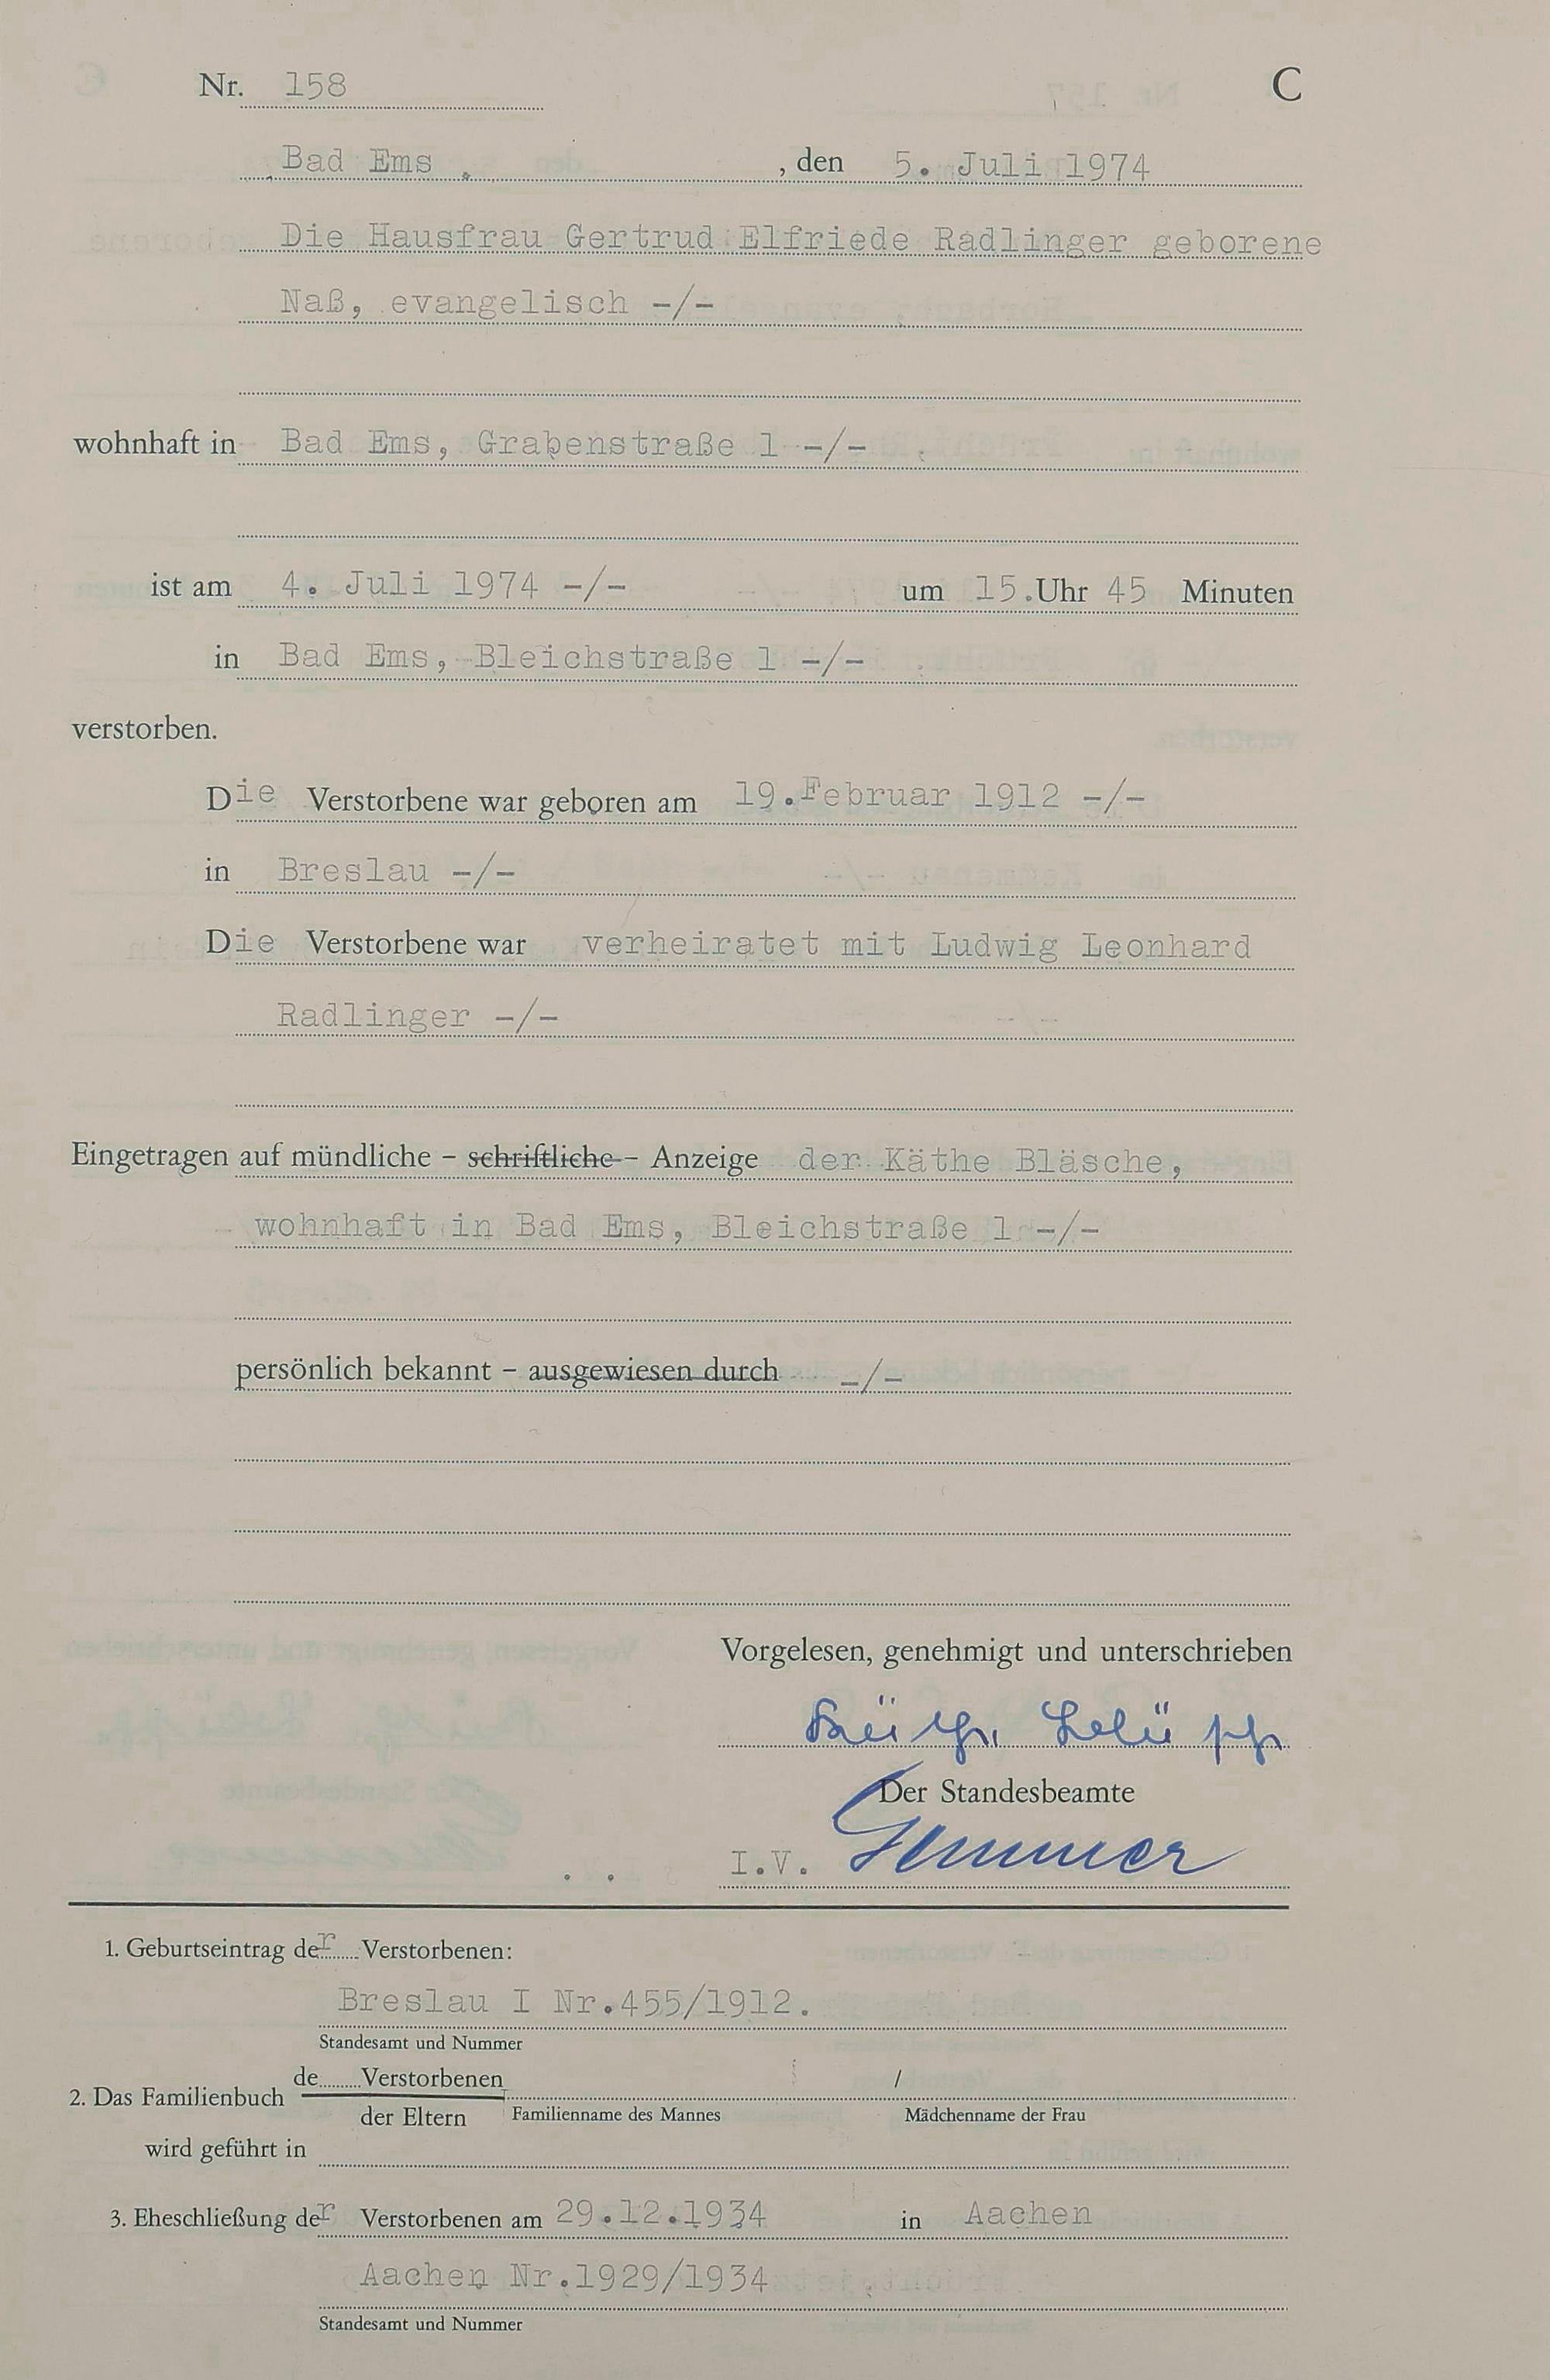 Nr. 158 C
Bad Ems , den 5. Juli 1974
Die Hausfrau Gertrud Elfriede Radlinger geborene
Naß, evangelisch -/-
wohnhaft in Bad Ems, Grabenstraße 1 -/-
ist am 4. Juli 1974 -/- um 15.Uhr 45 Minuten
in Bad Ems, Bleichstraße 1 -/-
verstorben.
Die Verstorbene war geboren am 19.Februar 1912 -/-
in Breslau -/-
Die Verstorbene war verheiratet mit Ludwig Leonhard
Radlinger -/-
Eingetragen auf mündliche - schriftliche - Anzeige der Käthe Bläsche,
wohnhaft in Bad Ems, Bleichstraße 1 -/-
persönlich bekannt - ausgewiesen durch -/-
Vorgelesen, genehmigt und unterschrieben
Käthe Bläsche
Der Standesbeamte
I.V.
1. Geburtseintrag der Verstorbenen:
Breslau I Nr.455/1912.
Standesamt und Nummer
de Verstorbenen /
2. Das Familienbuch
der Eltern Familienname des Mannes Mädchenname der Frau
wird geführt in
3. Eheschließung der Verstorbenen am 29.12.1934 in Aachen
Aachen Nr.1929/1934
Standesamt und Nummer